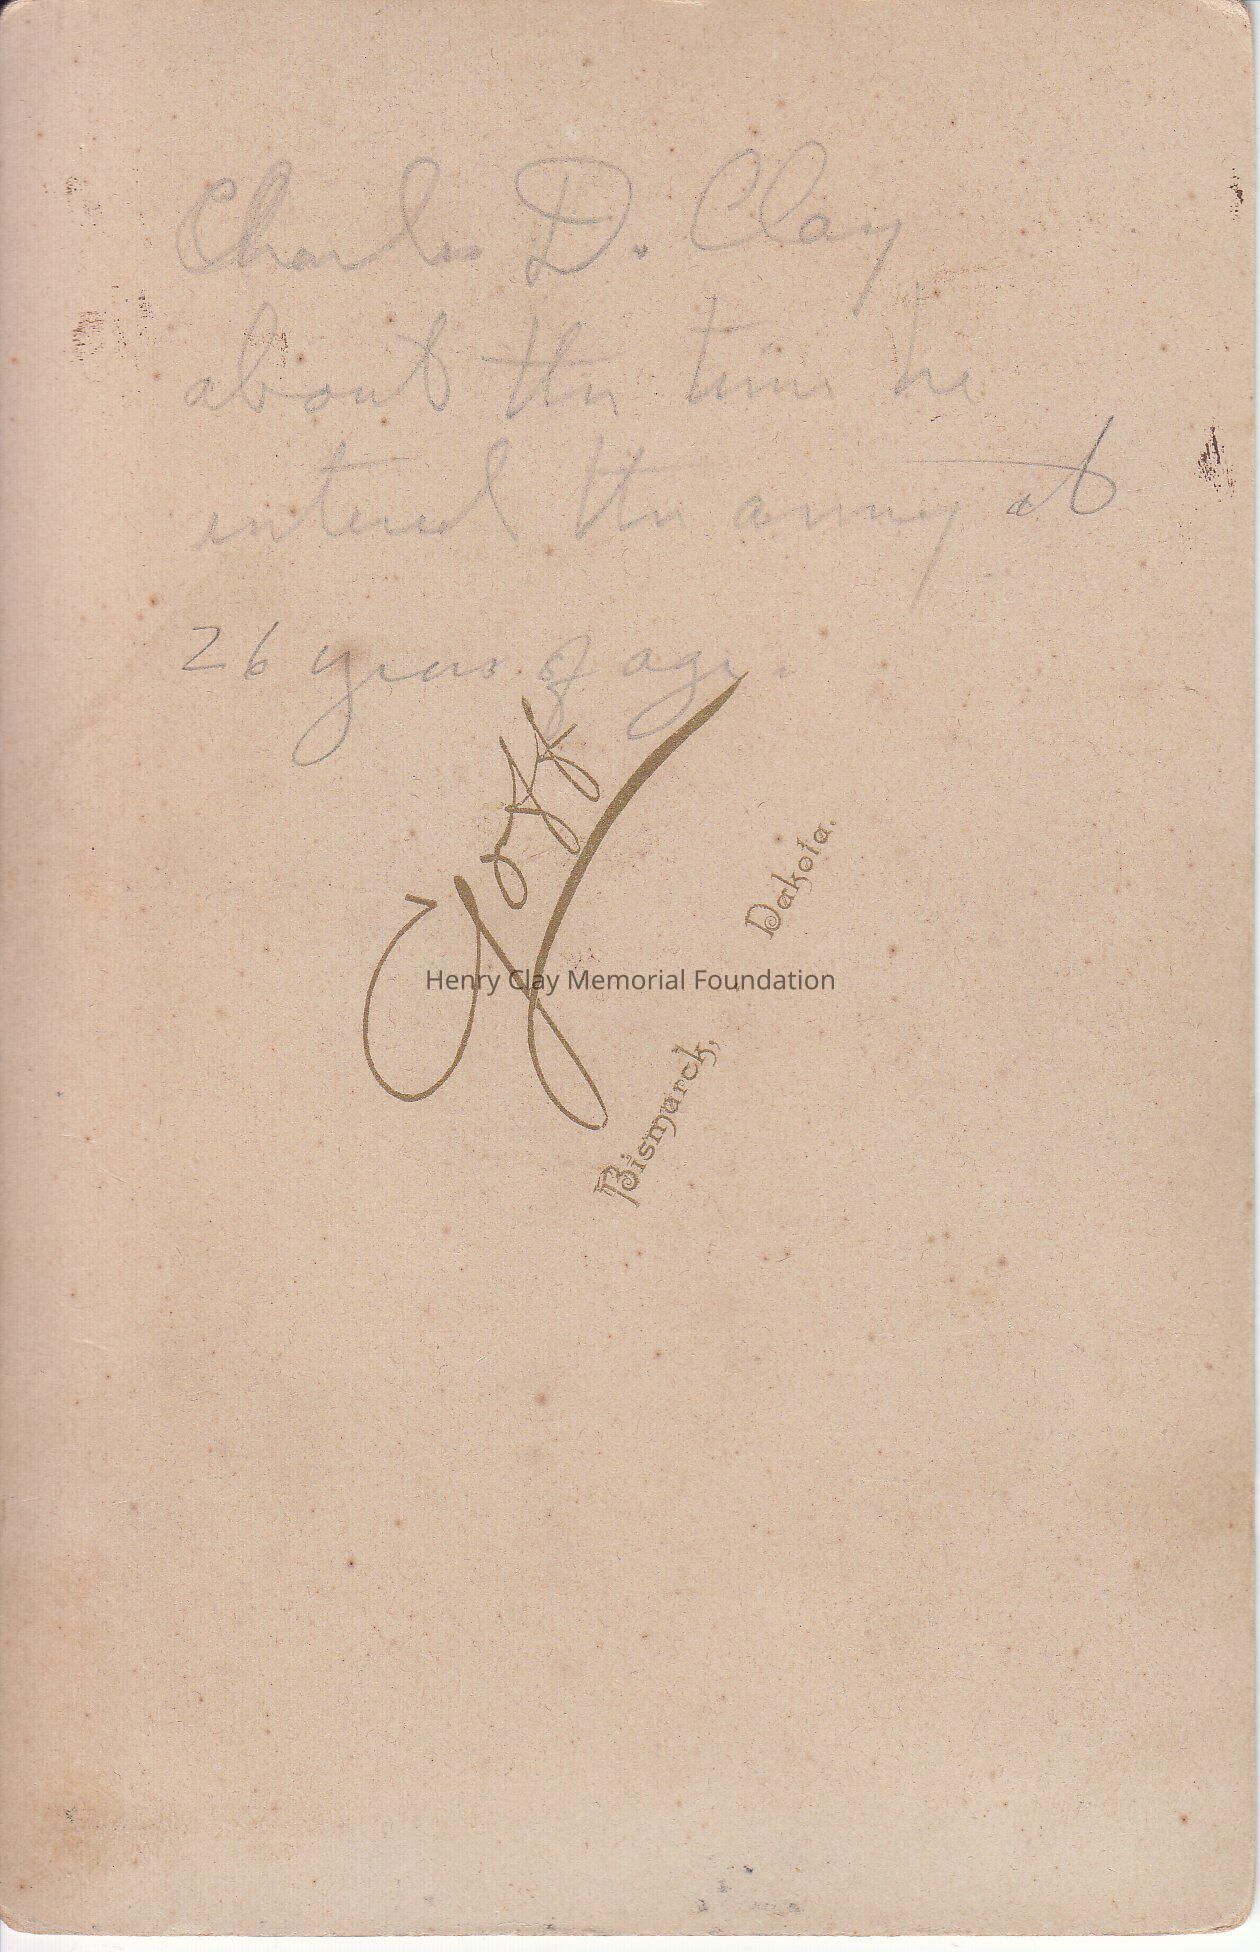 Charles D. Clay
about the time he
entered the army at
26 years of age.
Goff
Bismarck, Dakota.
Henry Clay Memorial Foundation